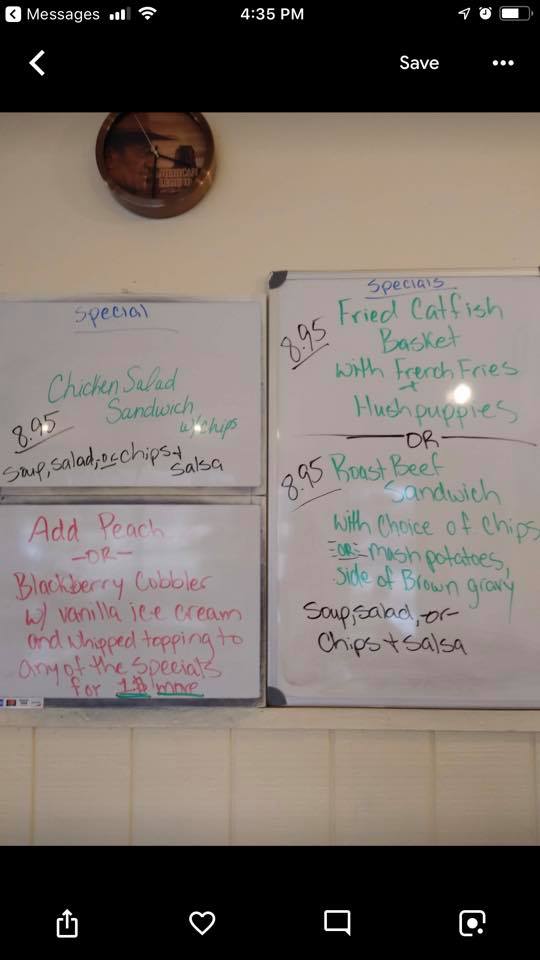 Messages
4:35 PM
Save
Special
Chicken Salad
Sandwich
w/chips
8.95
Soup, salad, or chips +
Salsa
Add Peach
-OR-
Blackberry Cobbler
w/ vanilla ice cream
and whipped topping to
any of the specials
for 1$ more
Specials
8.95
Fried Catfish
Basket
with French Fries
+
Hushpuppies
OR
8.95
Roast Beef
Sandwich
with Choice of Chips
-OR- mash potatoes,
side of Brown gravy
Soup, salad, -or-
Chips + Salsa